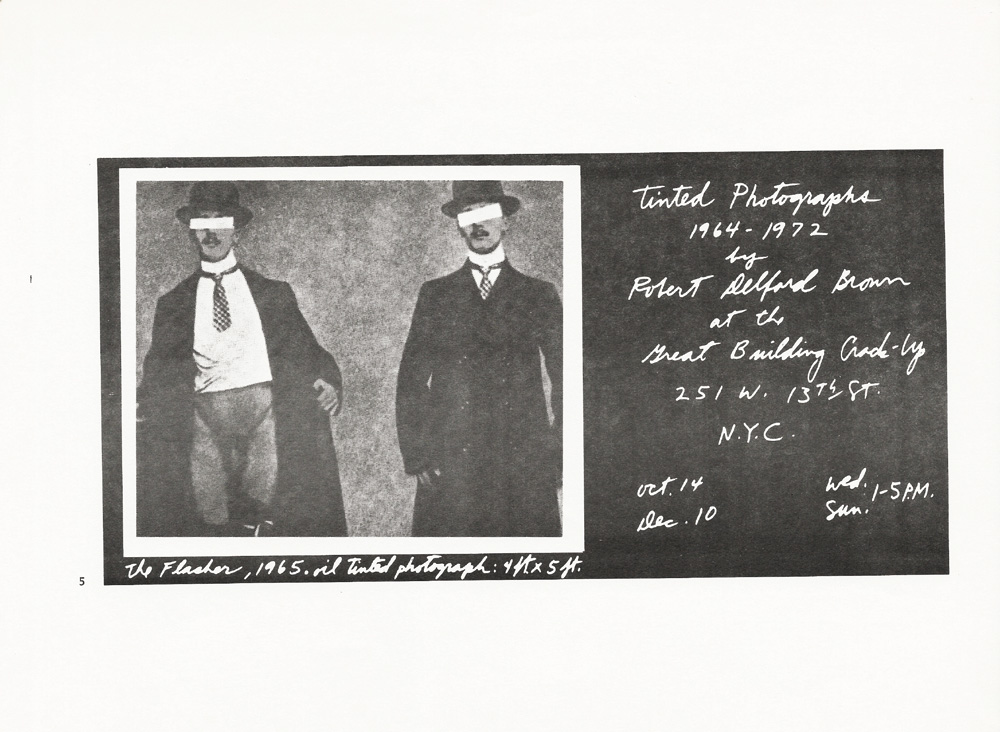 Tinted Photographs
1964-1972
by
Robert Delford Brown
at the
Great Building Crack-Up
251 W. 13TH ST.
N.Y.C.
Oct. 14
Dec. 10
Wed.
Sun.
1-5 P.M.
The Flasher, 1965. oil tinted photograph: 4 ft. x 5 ft.
5